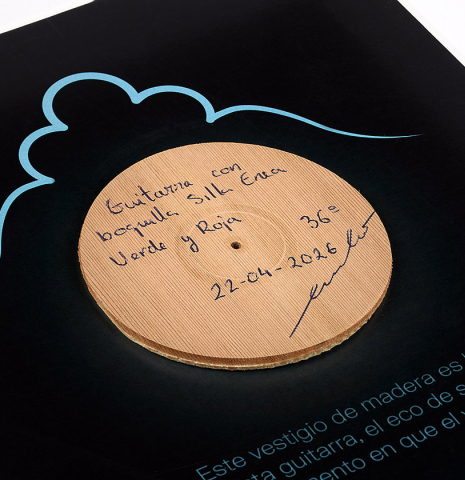 Guitarra con
boquilla Silla Enea
Verde y Roja
36º
22-04-2026
Este vestigio de madera es
ta guitarra, el eco de s
ento en que el